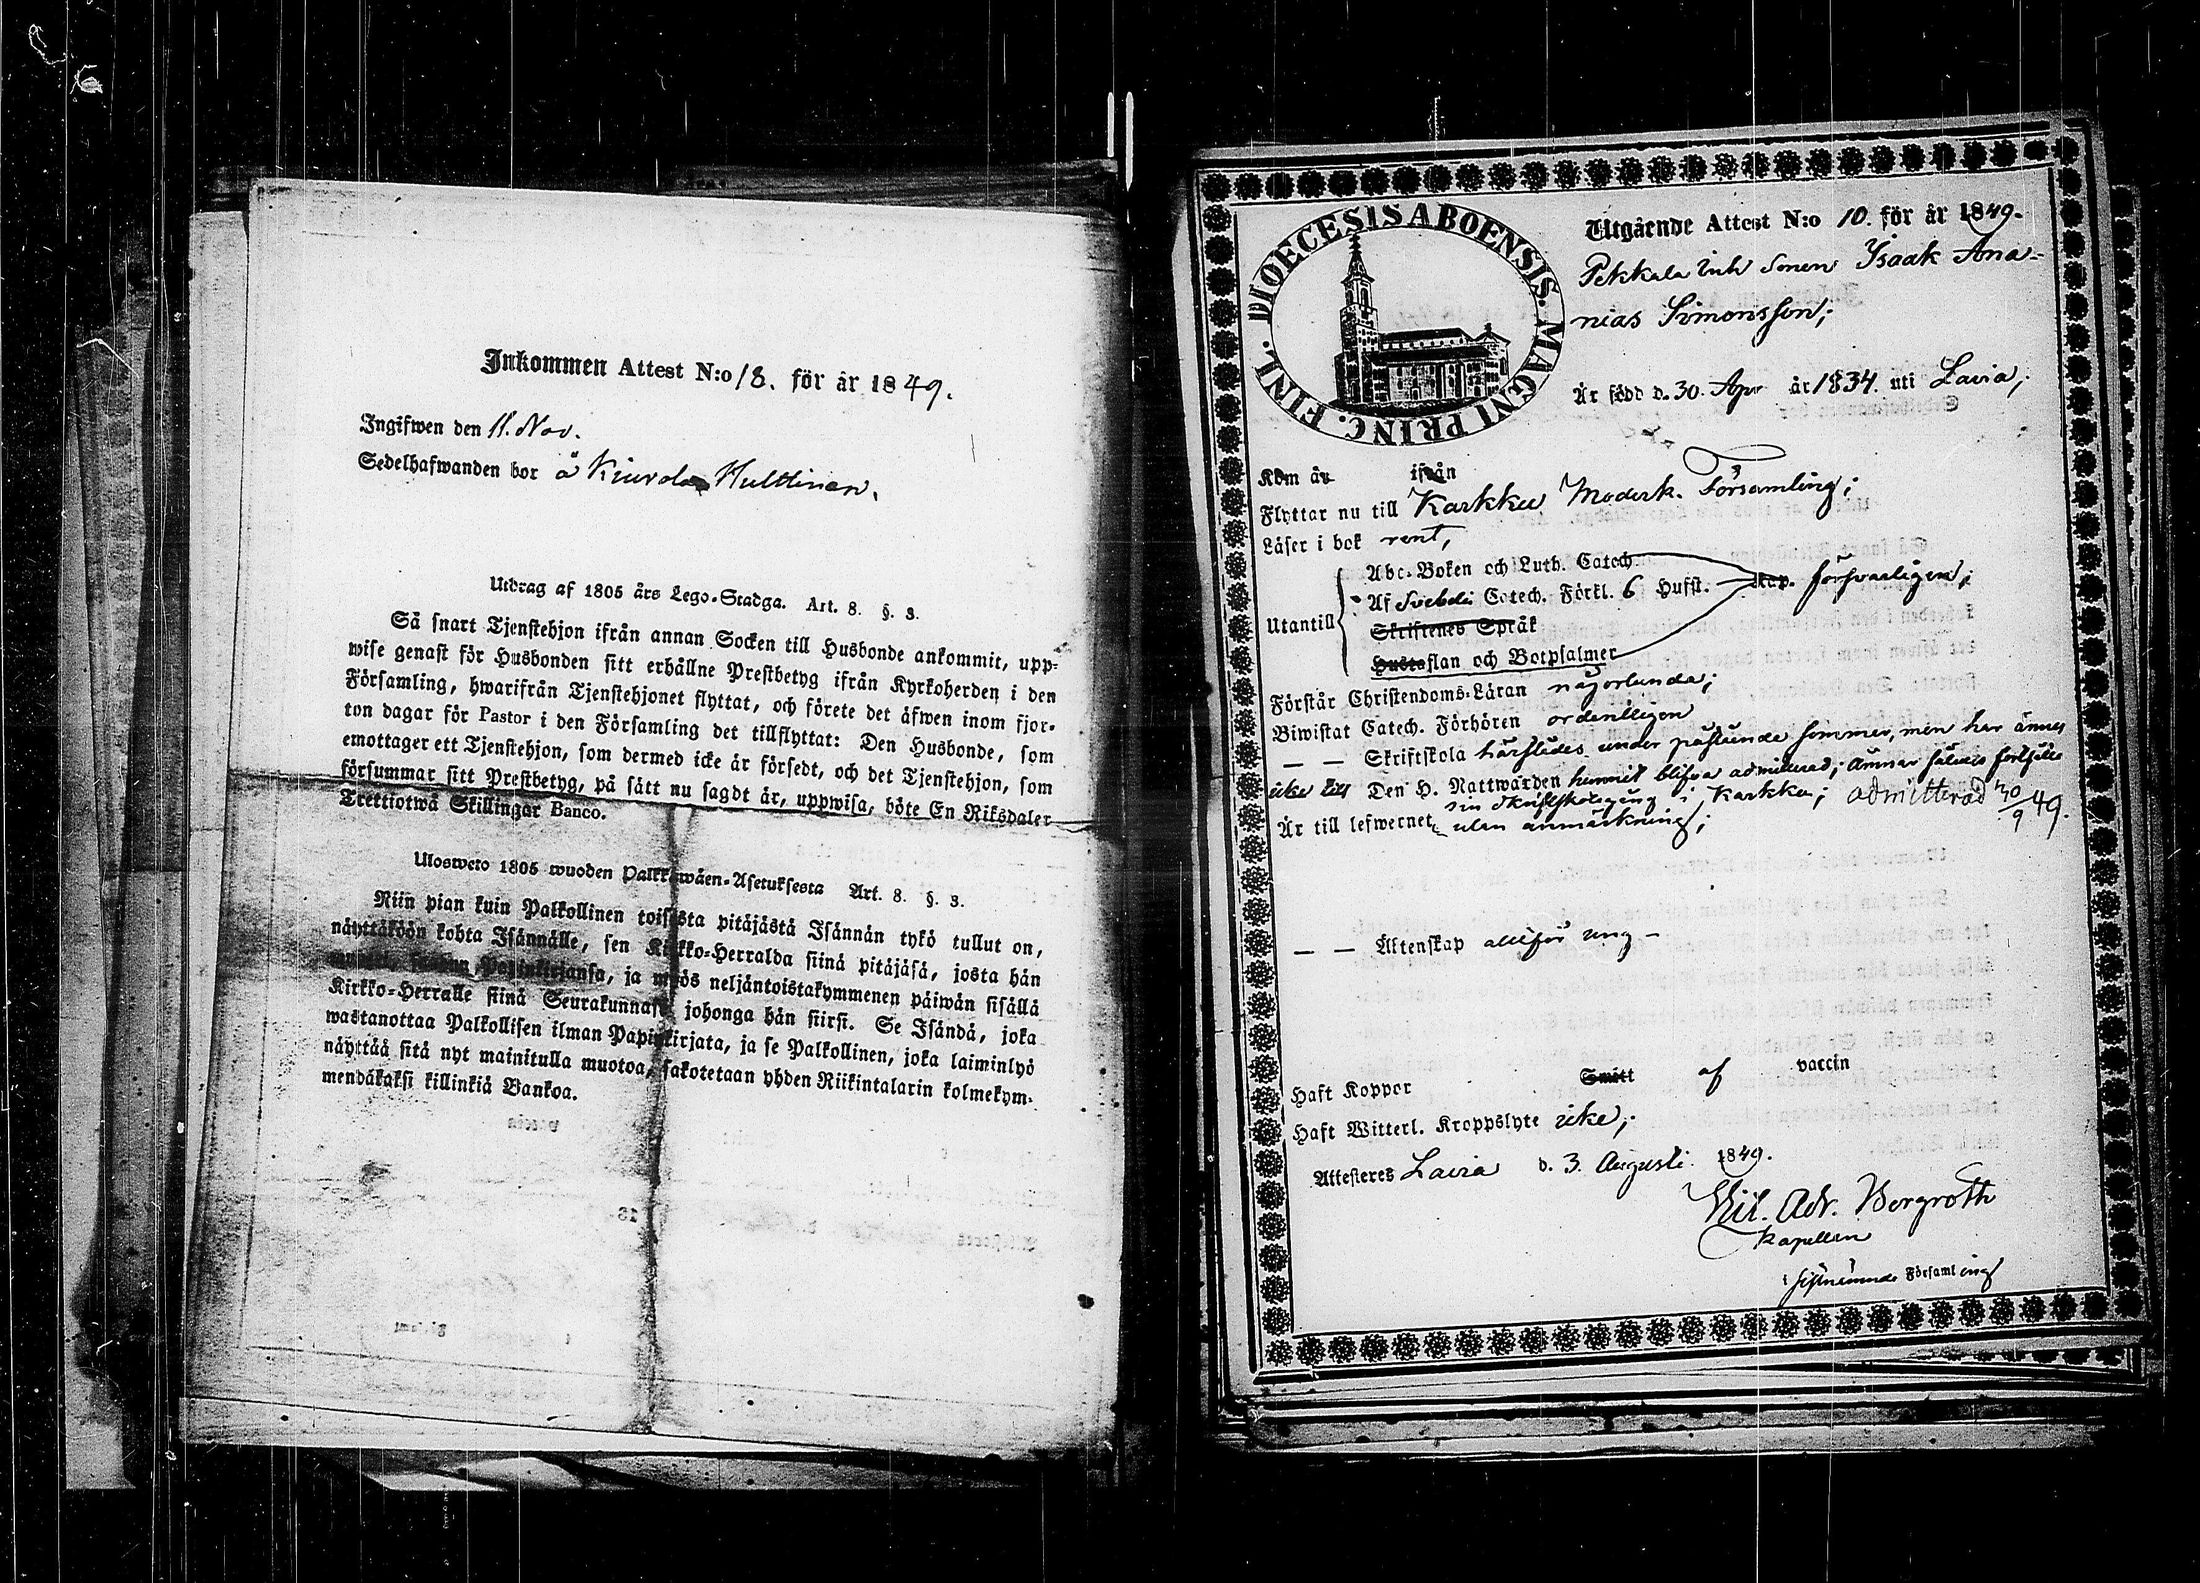 Inkommen Attest N:o 18. för år 1849.
Ingifwen den 11. Nov.
Sedelhafwanden bor å Kiurala Hulttinen.
Utdrag af 1805 års Lego-Stadga. Art. 8. §. 3.
Så snart Tjenstehjon ifrån annan Socken till Husbonde ankommit, upp-
wise genast för Husbonden sitt erhållne Prestbetyg ifrån Kyrkoherden i den
Församling, hwarifrån Tjenstehjonet flyttat, och förete det äfwen inom fjor-
ton dagar för Pastor i den Församling det tillflyttat: Den Husbonde, som
emottager ett Tjenstehjon, som dermed icke är försedt, och det Tjenstehjon, som
försummar sitt Prestbetyg, på sätt nu sagdt är, uppwisa, böte En Riksdaler
Trettiotwå Skillingar Banco.
Ulosweto 1805 wuoden Palkkawäen-Asetuksesta Art. 8. §. 3.
Niin pian kuin Palkollinen toisesta pitäjästä Isännän tykö tullut on,
näyttäköön kohta Isännälle, sen Kirkko-Herralda siinä pitäjäsä, josta hän
muutti, Papinkirjansa, ja myös neljäntoistakymmenen päiwän sisällä
Kirkko-Herralle siinä Seurakunnasa johonga hän siirsi. Se Isändä, joka
wastanottaa Palkollisen ilman Papinkirjata, ja se Palkollinen, joka laiminlyö
näyttää sitä nyt mainitulla muotoa, sakotetaan yhden Riikintalarin kolmekym-
mendäkaksi killinkiä Bankoa.
DIOECESIS ABOENSIS. MAGNI PRINC. FINL.
Utgående Attest N:o 10. för år 1849.
Pekkala Inh Sonen Isaak Ana-
nias Simonsson;
Är född d. 30. Apr år 1834. uti Lavia;
Kom år ifrån
Flyttar nu till Karkku Moderk. Församling;
Läser i bok rent,
Utantill
Abc-Boken och Luth. Catech.
Af Svebelii Catech. Förkl. 6 Hufst. Kap. försvarligen;
Skriftenes Språk
Hustaflan och Botpsalmer
Förstår Christendoms-Läran någorlunda;
Biwistat Catech. Förhören ordentligen
— — Skriftskola härstädes under påstående sommar, men har ännu
icke till Den H. Nattwarden hunnit blifva admitterad; ämnar
sin skriftskolegång i Karkku; admitterad 30/9 49.
Är till lefwernet utan anmärkning;
— — Äktenskap alltför ung —
Haft Koppor Smått af vaccin
Haft Witterl. Kroppslyte icke;
Attesteres Lavia d. 3. Augusti 1849.
Adr. Bergroth
Kapellan
i sistnämnde Församling